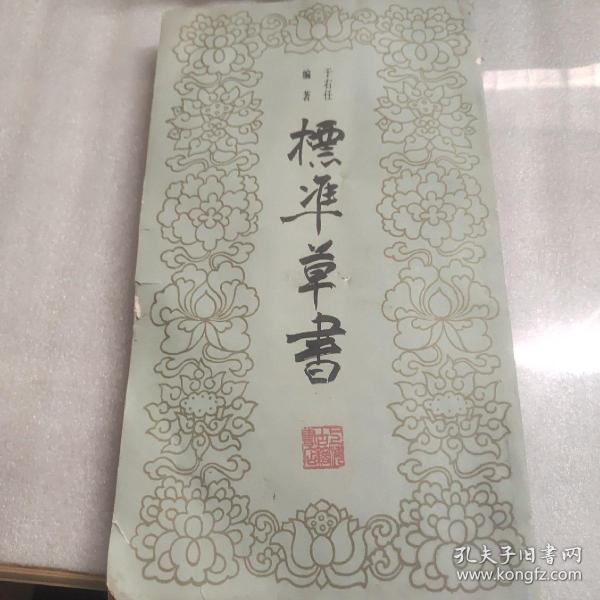 于右任
编著
標準草書
孔夫子旧书网
www.kongfz.com